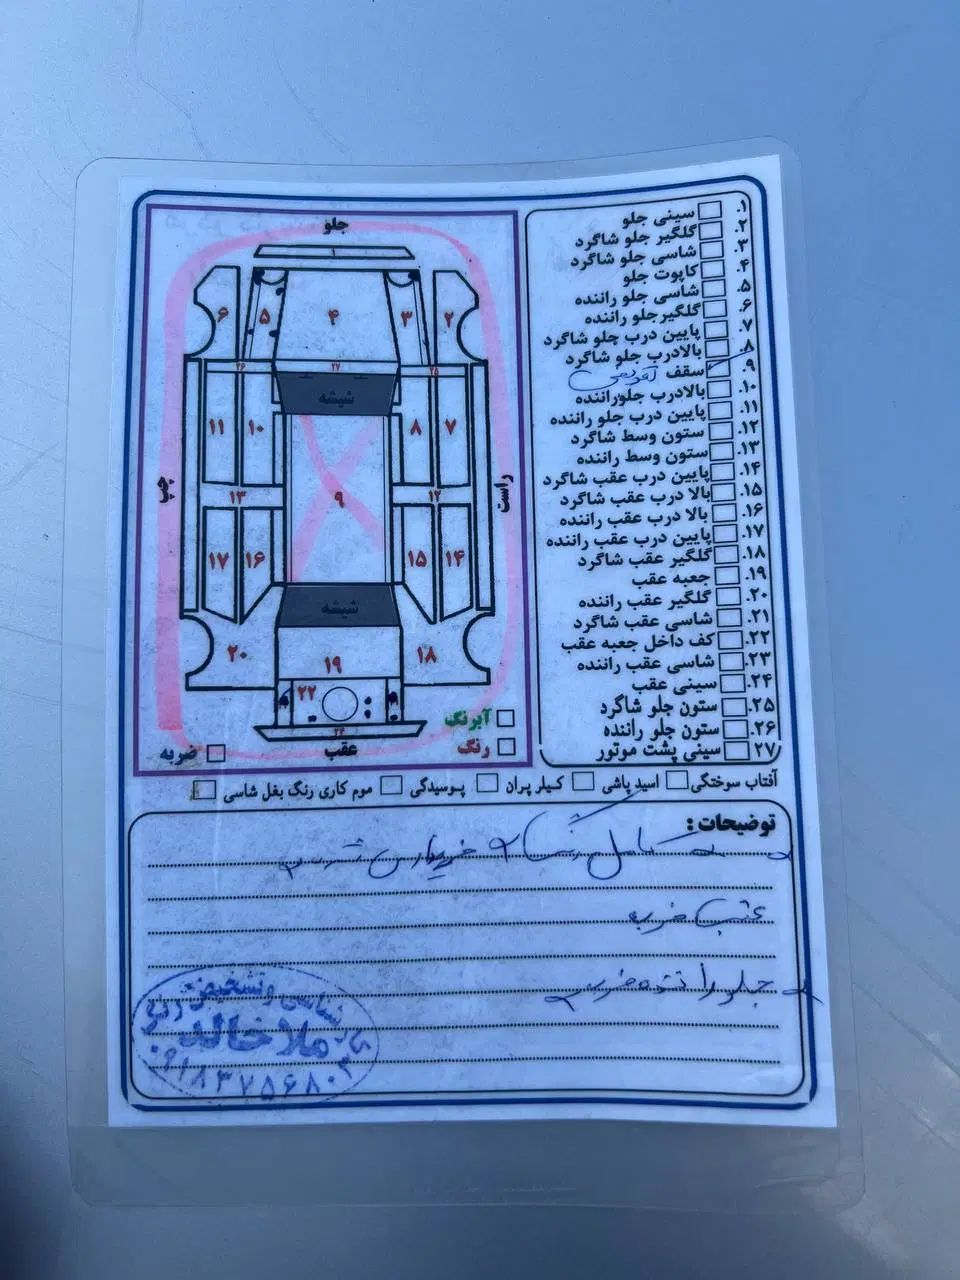 جلو
۱
۶
۵
۴
۳
۲
۲۶
۲۷
۲۵
شیشه
۱۱
۱۰
۸
۷
چپ
راست
۹
۱۳
۱۲
۱۷
۱۶
۱۵
۱۴
شیشه
۲۰
۱۹
۱۸
۲۲
۲۴
عقب
آبرنگ
رنگ
ضربه
۱. سینی جلو
۲. گلگیر جلو شاگرد
۳. شاسی جلو شاگرد
۴. کاپوت جلو
۵. شاسی جلو راننده
۶. گلگیر جلو راننده
۷. پایین درب جلو شاگرد
۸. بالادرب جلو شاگرد
۹. سقف
۱۰. بالادرب جلوراننده
۱۱. پایین درب جلو راننده
۱۲. ستون وسط شاگرد
۱۳. ستون وسط راننده
۱۴. پایین درب عقب شاگرد
۱۵. بالا درب عقب شاگرد
۱۶. بالا درب عقب راننده
۱۷. پایین درب عقب راننده
۱۸. گلگیر عقب شاگرد
۱۹. جعبه عقب
۲۰. گلگیر عقب راننده
۲۱. شاسی عقب شاگرد
۲۲. کف داخل جعبه عقب
۲۳. شاسی عقب راننده
۲۴. سینی عقب
۲۵. ستون جلو شاگرد
۲۶. ستون جلو راننده
۲۷. سینی پشت موتور
آفتاب سوختگی اسید پاشی کیلر پران پوسیدگی موم کاری رنگ بغل شاسی
توضیحات :
عقب ضربه
جلو راننده ضربه
و تشخیص رنگ
ملا خالد